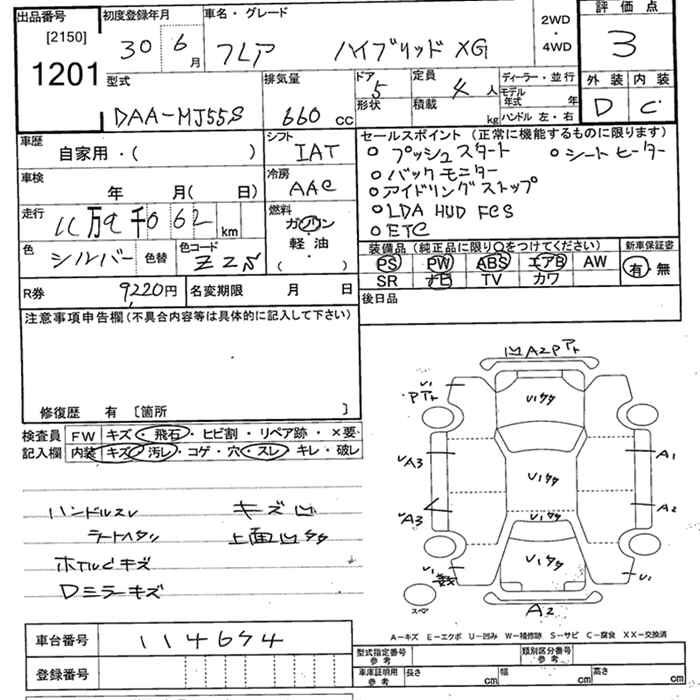 出品番号 初度登録年月 車名・グレード 2WD 評価点
[2150] 30 6月 フレア ハイブリッド XG ・ 3
1201 4WD
型式 排気量 ドア 定員 ディーラー・並行 外装 内装
DAA-MJ55S 660cc 5 4人 モデル年式 年 D C
形状 積載 kg ハンドル 左・右
車歴 シフト セールスポイント(正常に機能するものに限ります)
自家用・( ) IAT ○プッシュスタート ○シートヒーター
車検 冷房 ○バックモニター
年 月( 日) AAC ○アイドリングストップ
走行 燃料 ○LDA HUD FCS
11万9千062km ガソリン ○ETC
軽・油
( )
色 色替 色コード 装備品(純正品に限り○をつけてください) 新車保証書
シルバー ZZS PS PW ABS エアB AW 有・無
SR ナビ TV カワ
R券 9,220円 名変期限 月 日 後日品
注意事項申告欄(不具合内容等は具体的に記入して下さい)
修復歴 有 〔箇所 〕
検査員 FW キズ・飛石・ヒビ割・リペア跡・×要
記入欄 内装 キズ・汚レ・コゲ・穴・スレ・キレ・破レ
ハンドルスレ キズ凹
シートヘタリ 上面凹タタ
ホイルCキズ
Dミラーキズ
凹A2Pアト
U1
Pアト
U1タタ
UA3 U1タタ A1
U1タタ
UA3 A2
U1タタ
U1 U1
スペア A2
A-キズ E-エクボ U-凹み W-補修跡 S-サビ C-腐食 XX-交換済
車台番号 114674 型式指定番号 参考 類別区分番号 参考
登録番号 車庫証明用 参考 長さ cm 幅 cm 高さ cm